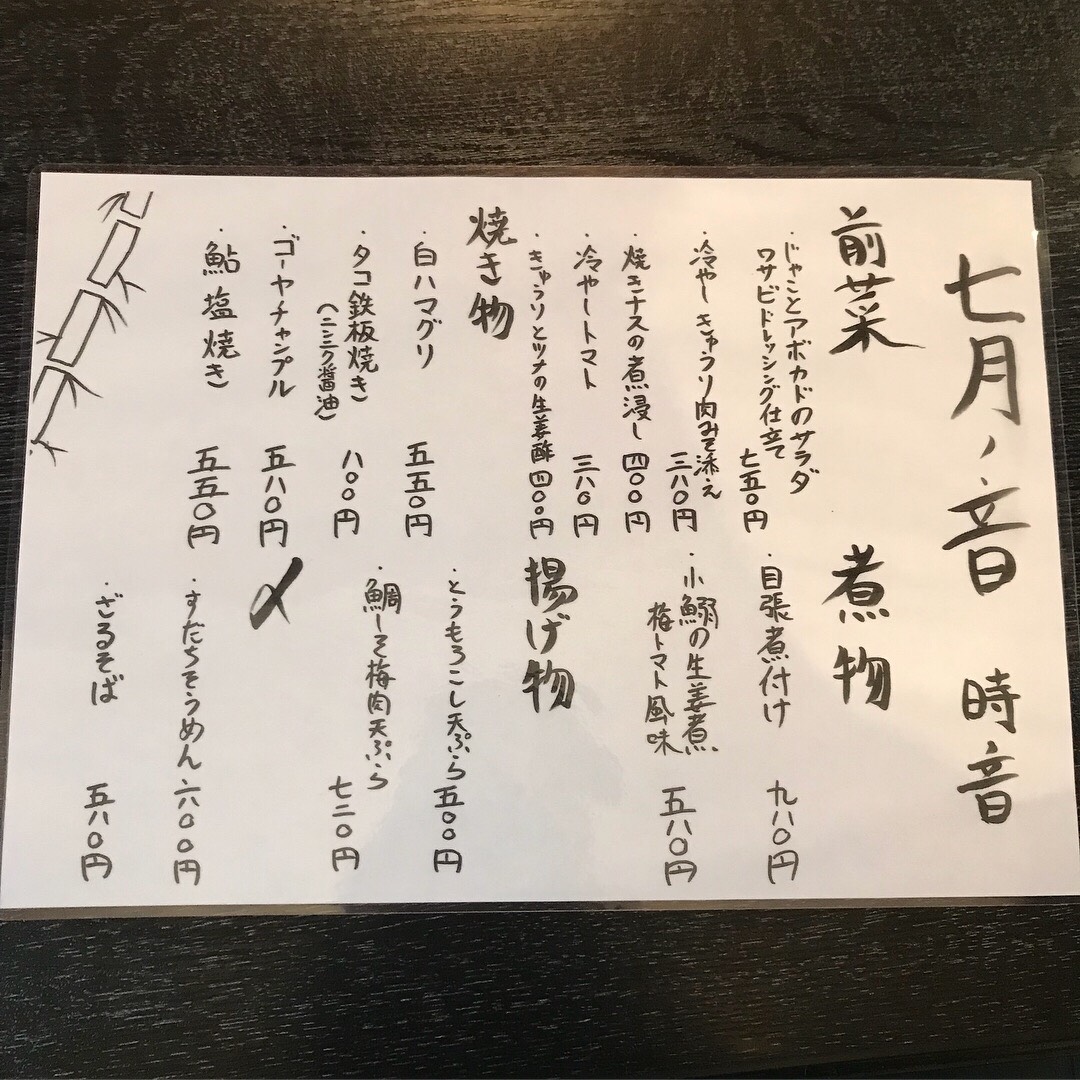 七月ノ音 時音
前菜
・じゃことアボカドのサラダ
ワサビドレッシング仕立て
七五〇円
・冷やしきゅうり肉みそ添え
三八〇円
・焼きナスの煮浸し 四〇〇円
・冷やしトマト 三八〇円
・きゅうりとツナの生姜酢 四〇〇円
焼き物
・白ハマグリ 五五〇円
・タコ鉄板焼き
(ニンニク醤油)
八〇〇円
・ゴーヤチャンプル 五八〇円
・鮎塩焼き 五五〇円
煮物
・目張煮付け 九八〇円
・小鰯の生姜煮
梅トマト風味 五八〇円
揚げ物
・とうもろこし天ぷら 五〇〇円
・鯛しそ梅肉天ぷら
七二〇円
〆
・すだちそうめん 六〇〇円
・ざるそば 五八〇円